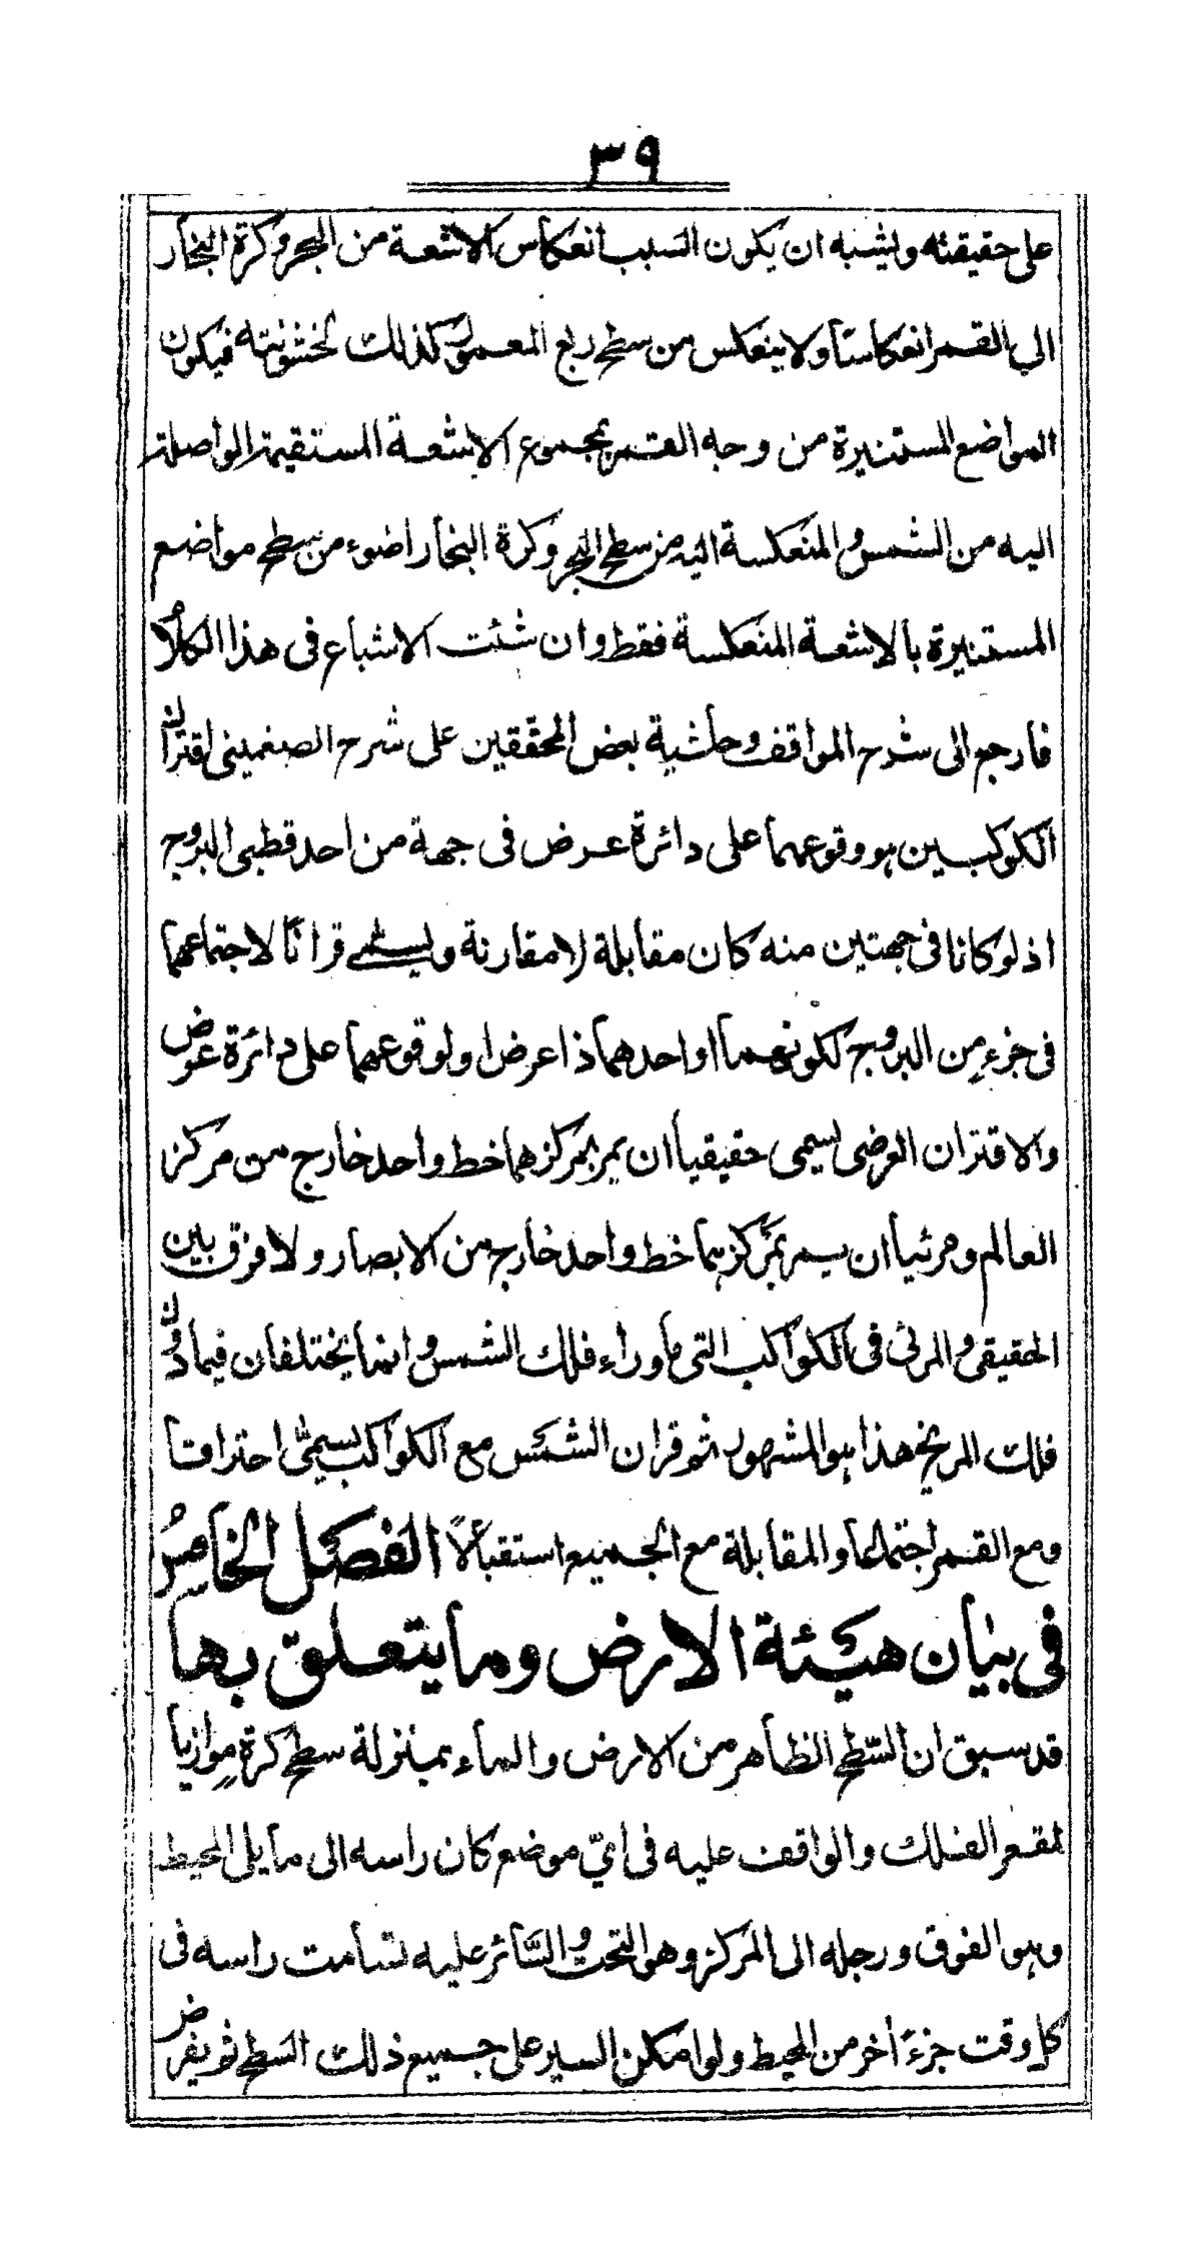 ٣٩
على حقيقته ويشبه ان يكون السبب انعكاس الاشعة من البحر وكرة البخار
الى القمر انعكاسا ولا ينعكس من سطح ربع المعمور كذلك لخشونته فيكون
المواضع المستنيرة من وجه القمر بمجموع الاشعة المستقيمة الواصلة
اليه من الشمس والمنعكسة اليه من سطح البحر وكرة البخار اضوء من سطح مواضع
المستنيرة بالاشعة المنعكسة فقط وان شئت الاشباع فى هذا الكلام
فارجع الى شرح المواقف وحاشية بعض المحققين على شرح الچغمينى اقتران
الكوكبين هو وقوعهما على دائرة عرض فى جهة من احد قطبى البروج
اذ لو كانا فى جهتين منه كان مقابلة لا مقارنة ويسمى قرانا لاجتماعهما
فى جزء من البروج لكونهما او احدهما ذا عرض او لوقوعهما على دائرة عرض
والاقتران العرضى يسمى حقيقيا ان يمر بمركزهما خط واحد خارج من مركز
العالم ومرئيا ان يمر بمركزهما خط واحد خارج من الابصار ولا فرق بين
الحقيقى والمرئى فى الكواكب التى ما وراء فلك الشمس وانما يختلفان فيما دون
فلك المريخ هذا هو المشهور ثم قران الشمس مع الكواكب يسمى احتراقا
ومع القمر اجتماعا والمقابلة مع الجميع استقبالاً الفصل الخامس
فى بيان هيئة الارض وما يتعلق بها
قد سبق ان السّطح الظاهر من الارض والماء بمنزلة سطح كرة موازيا
لمقعر الفلك والواقف عليه فى أىّ موضع كان راسه الى ما يلى المحيط
وهو الفوق ورجله الى المركز وهو التحت والسّائر عليه تسامت راسه فى
كل وقت جزءً أخر من المحيط ولو امكن السير على جميع ذلك السطح ثم يفرض